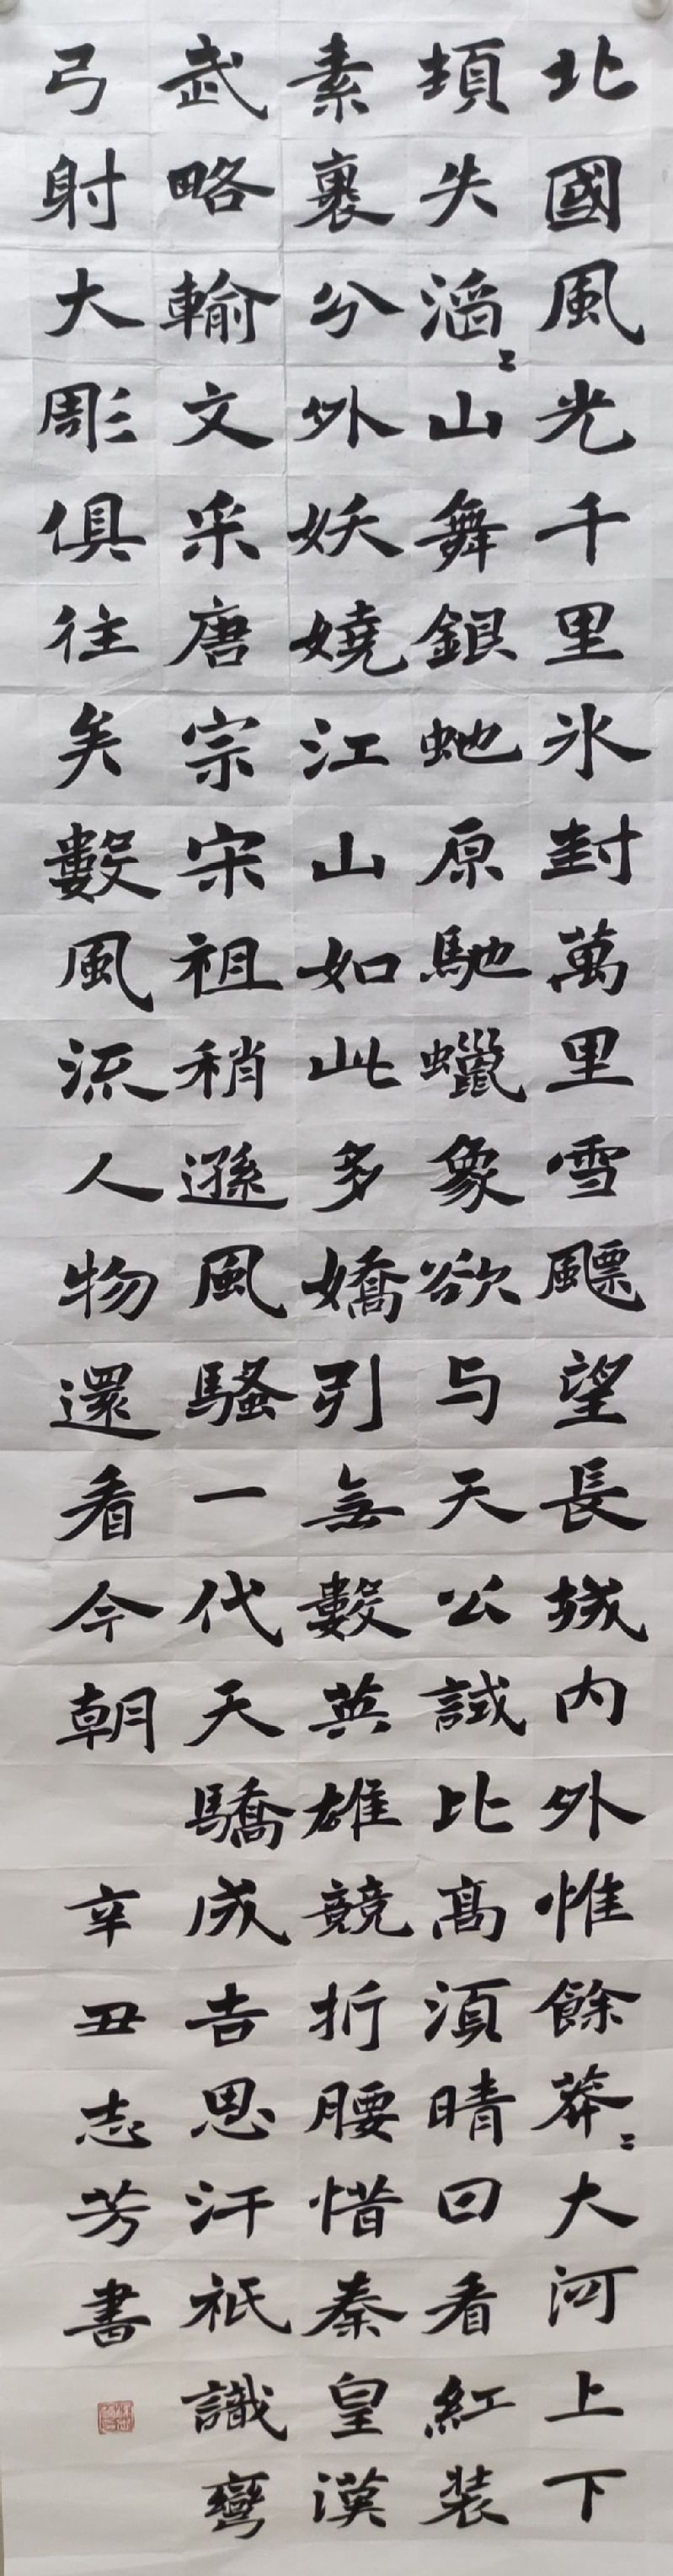 北國風光千里氷封萬里雪飄望長城内外惟餘莽〻大河上下
頓失滔〻山舞銀虵原馳蠟象欲与天公試比高須晴日看紅装
素裹分外妖嬈江山如此多嬌引無數英雄競折腰惜秦皇漢
武略輸文采唐宗宋祖稍遜風騷一代天驕成吉思汗祇識彎
弓射大彫俱往矣數風流人物還看今朝 辛丑志芳書